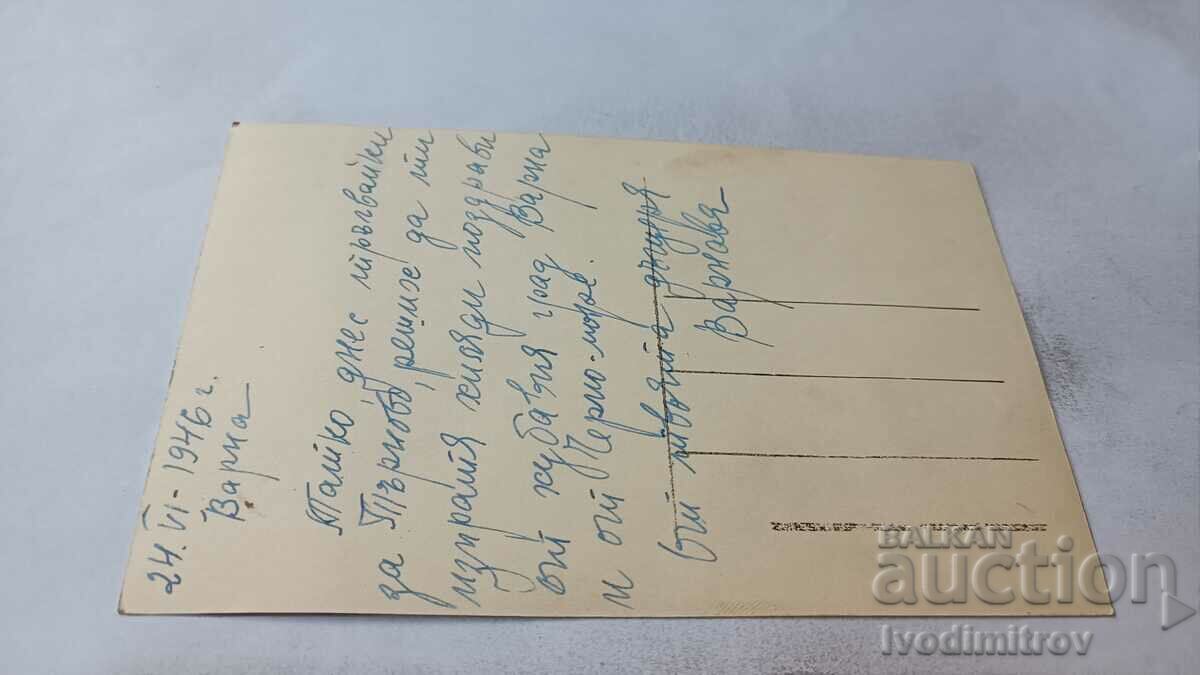 24. VI - 1946 г.
Варна
Татко днес тръгвайки
за Търново, решихме да ти
изпратя хиляди поздрави
от хубавия град Варна
и от Черно-морев.
От твоята дъщеря
Варнова
BALKAN
auction
Ivodimitrov